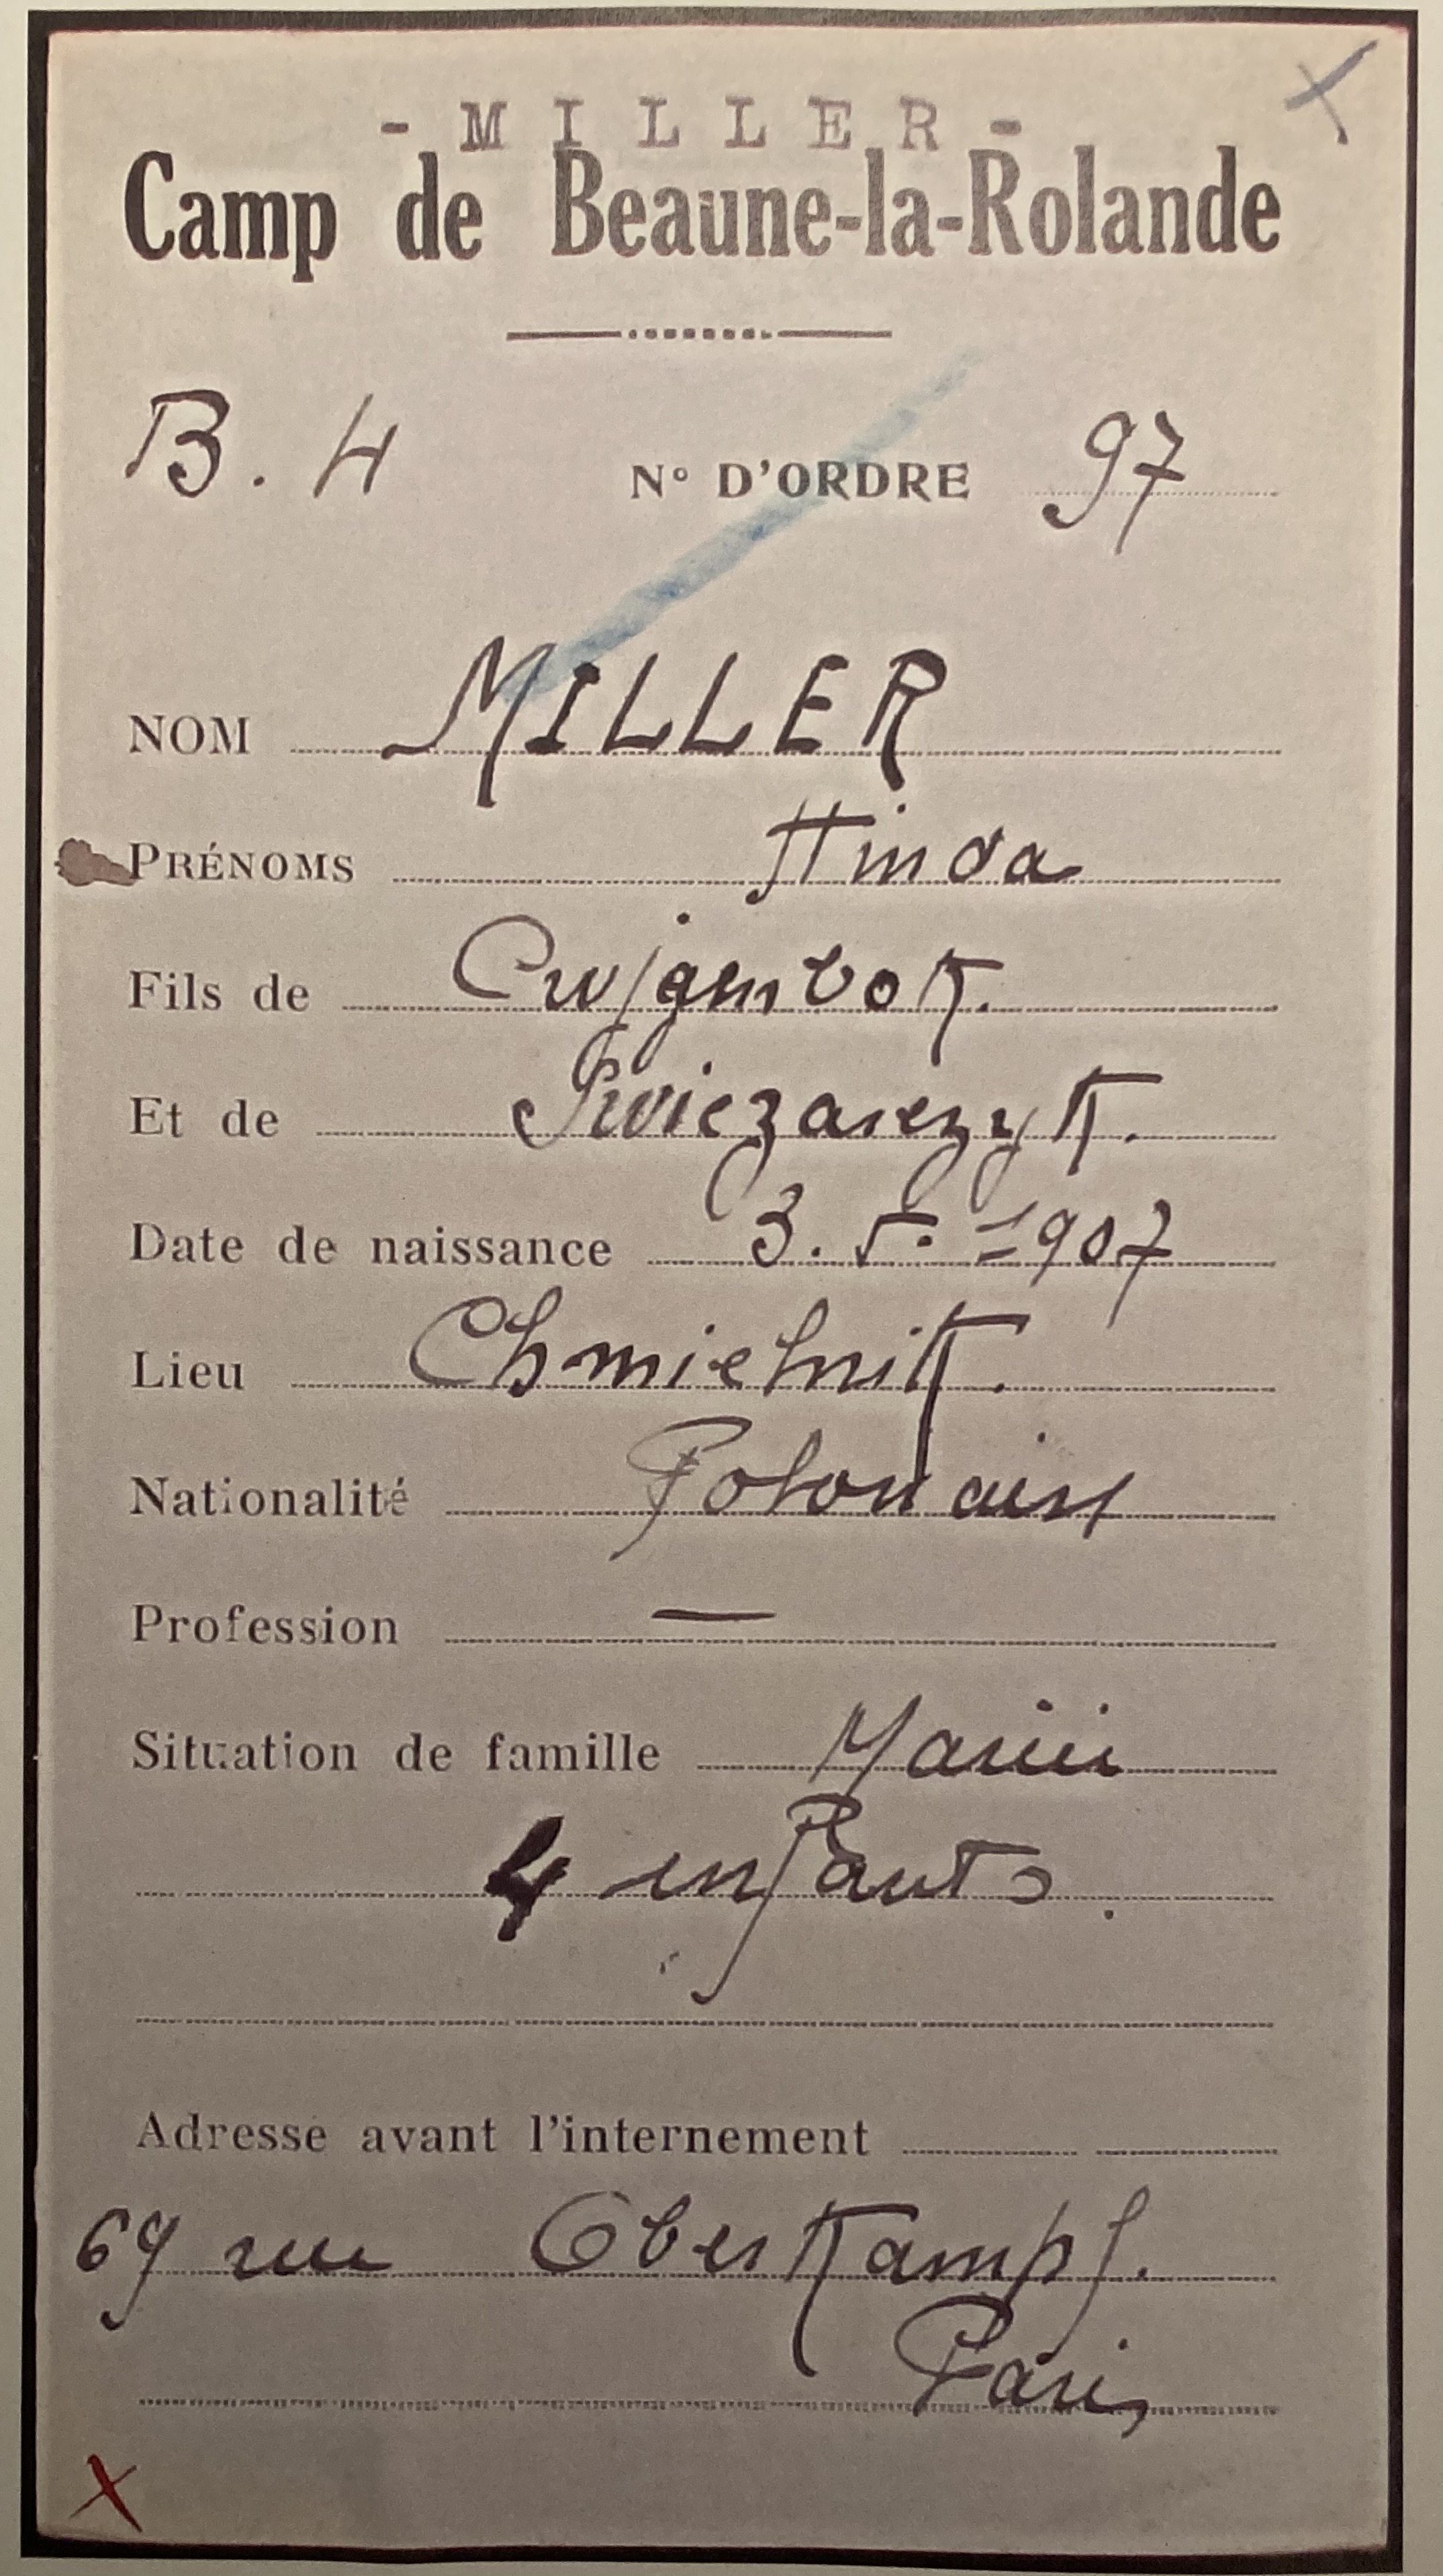 - M I L L E R -
Camp de Beaune-la-Rolande
B. 4 N° D'ORDRE 97
NOM MILLER
PRÉNOMS Hinda
Fils de Cwjgenbok.
Et de
Date de naissance 3. 5. 1907
Lieu Chmielnik.
Nationalité Polonaise
Profession —
Situation de famille Mariée
4 enfants.
Adresse avant l'internement
69 rue Oberkampf.
Paris
X